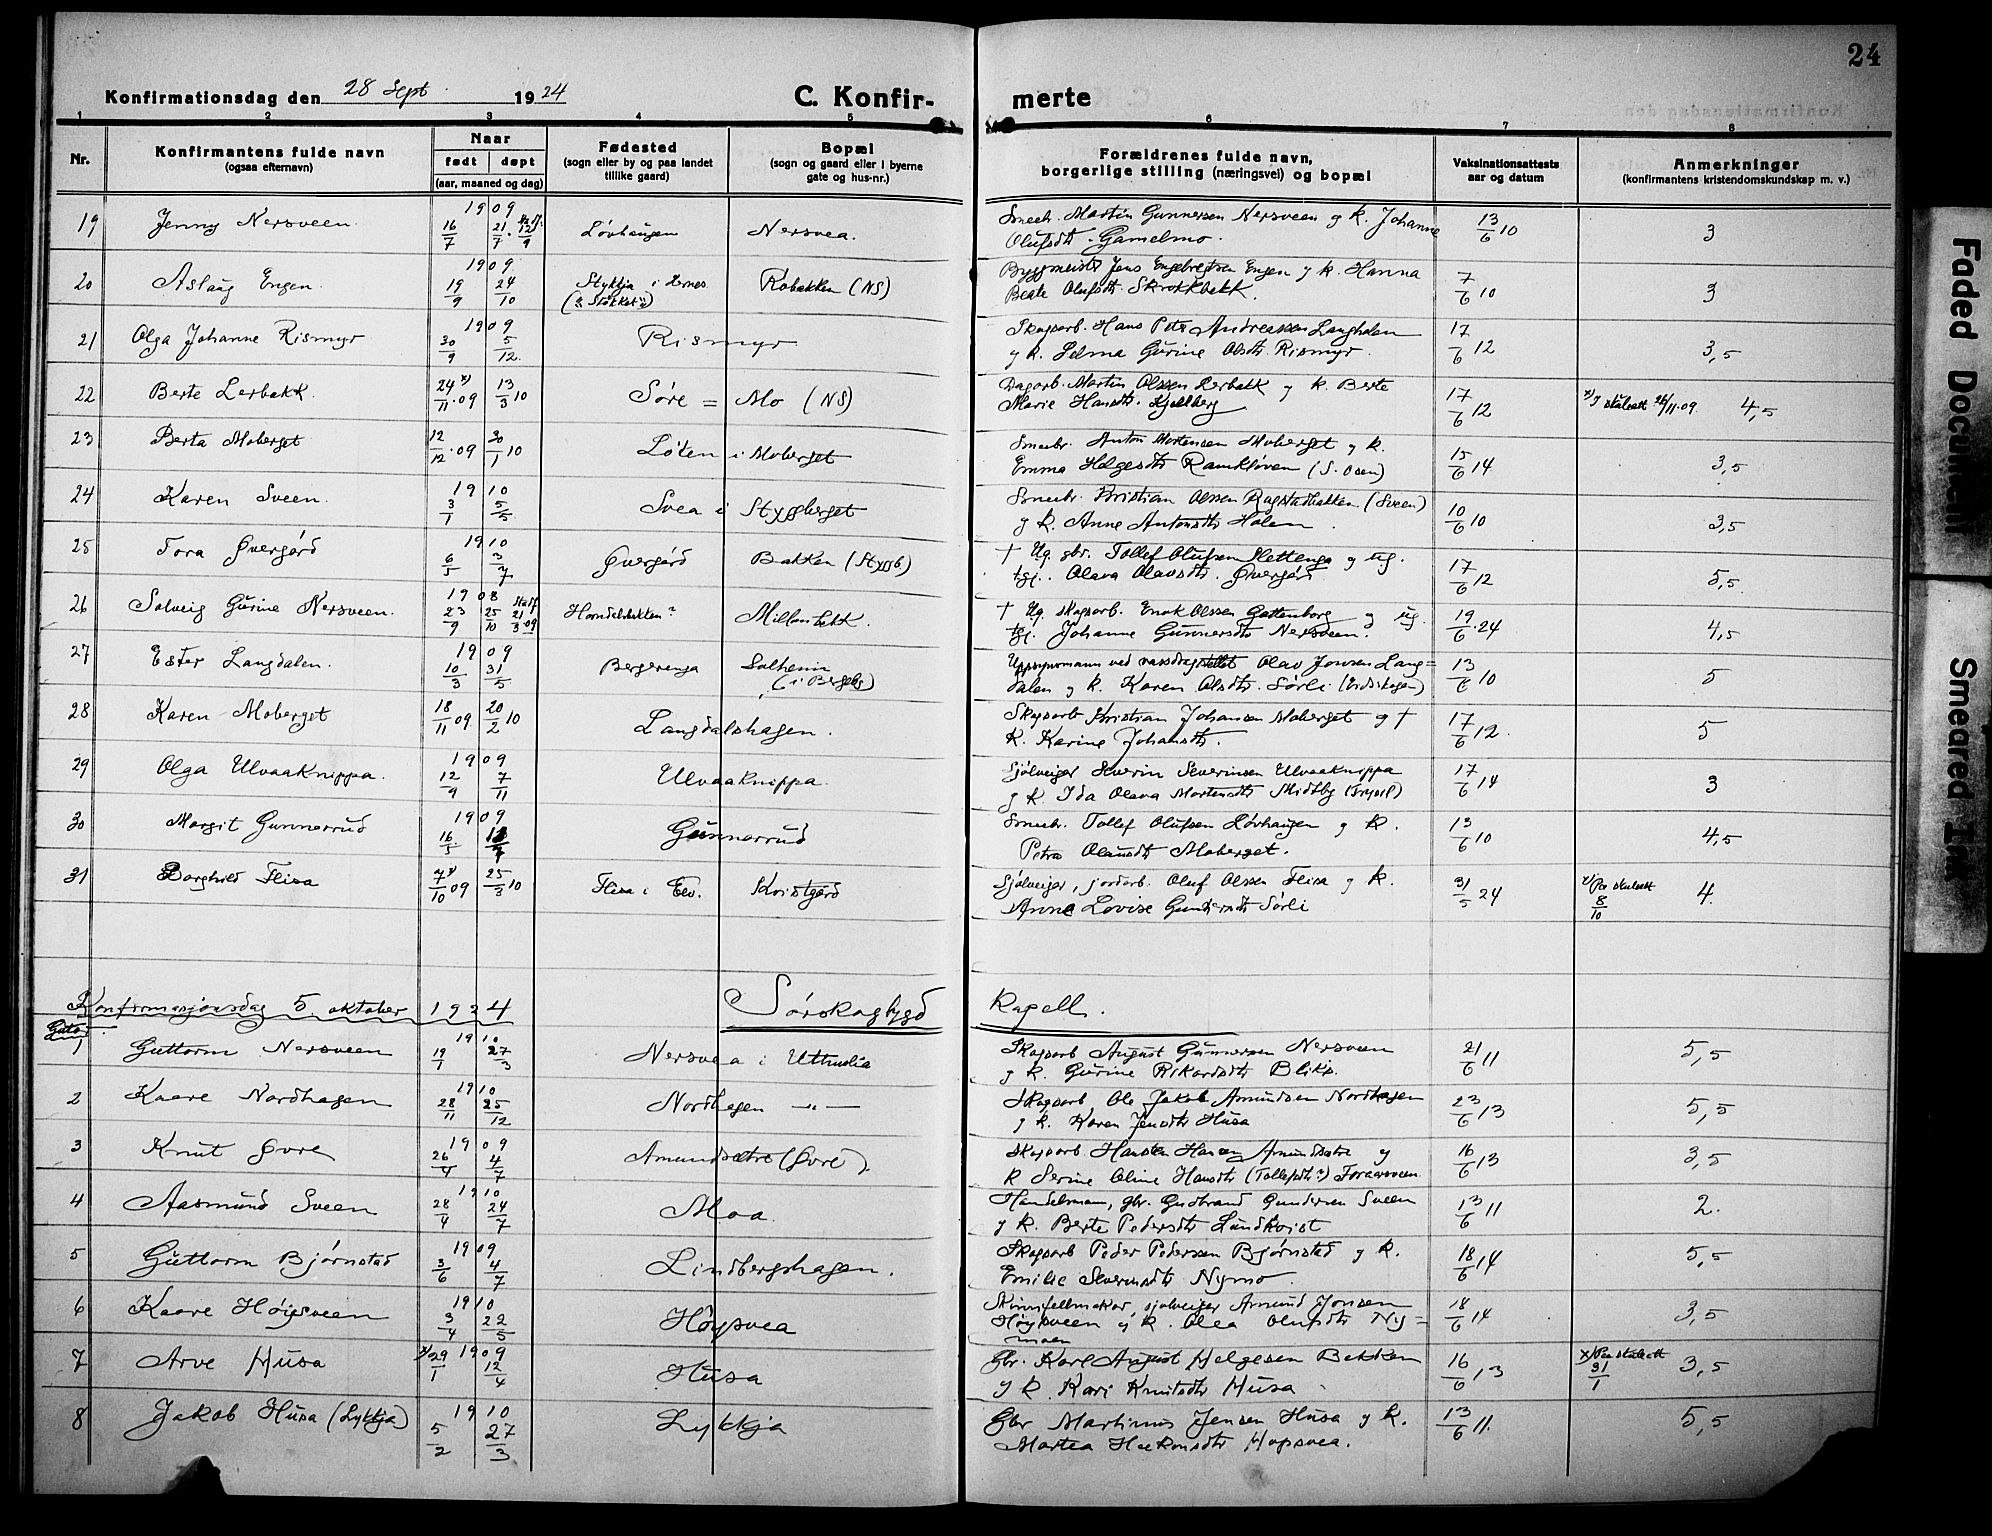 24
Konfirmationsdag den 28 Sept 1924
C. Konfirmerte
1 2 3 4 5 6 7 8
Nr. Konfirmantens fulde navn (ogsaa efternavn)
Naar født døpt (aar, maaned og dag)
Fødested (sogn eller by og paa landet tillike gaard)
Bopæl (sogn og gaard eller i byerne gate og hus-nr.)
Forældrenes fulde navn, borgerlige stilling (næringsvei) og bopæl
Vaksinationsattests aar og datum
Anmerkninger (konfirmantens kristendomskundskap m. v.)
19 Jenny Nersveen. 1909 16/7 21/7. 12/9 Løvhaugen Nersvea. Martin Gunnersen Nersveen og k. Johanne
Olufsdtr. Gamelmo. 13/6 10 3
20 Aslaug Engen. 1909 19/9 24/10 Stykkja i Hernes Robakken (NS) Byggmeister Jens Engebregtsen Engen og k. Hanna
Beate Olufsdtr. Skrokkbekk. 7/6 10 3
21 Olga Johanne Rismyr 1909 30/9 5/12. Rismyr Skogsarb. Hans Peter Andreassen Langholen
og k. Selma Gurine Olsdtr. Rismyr. 17/6 12 3,5
22 Berte Lerbekk. 24x)/11.09 13/3 10 Søre = Mo (NS) Dagarb. Martin Olssen Lerbekk og k. Berte
Marie Hansdtr. Kjellberg 17/6 12 x) I skuleatt 26/11.09. 4,5
23 Berta Moberget 12/12.09 30/1 10 Løten i Moberget Smeebr. Anton Mortensen Moberget og k.
Emma Helgesdtr. Ramkløven (S. Osen) 15/6 14 3,5
24 Karen Sveen. 1910 3/1 5/5 Svea i Styggberget Smeebr. Kristian Olssen Rogstadbakken (Sveen)
og k. Anne Antonsdtr. Holen. 10/6 10 3,5
25 Tora Øvergård 1910 6/5 3/7 Øvergård Bakken (Styggb) † Ug. gbr. Tollef Olufsen Slettenga og ug.
tgj. Olava Olavsdtr. Øvergård 17/6 12 5,5
26 Solveig Gurine Nersveen. 1908 23/9 25/10 21/3 09 Horndalsbakken? Millombekk. † Ug. skogsarb. Enok Olssen Gottenborg og ug.
tgj. Johanne Gunnersdtr Nersveen. 19/6.24 4,5
27 Ester Langdalen. 1909 10/3 31/5 Bergerenga Solheim
(i Bergeby) Uppsynsmann ved vassdragstellet Olav Jonsen Lang=
dalen og k. Karen Olsdtr. Sørli 13/6 10 5
28 Karen Moberget 18/11 09 20/2 10 Langdalshagen. Skogsarb Kristian Johansen Moberget og †
k. Karine Johansdtr. 17/6 12. 5
29 Olga Ulvaaknippa. 1909 12/9 7/11 Ulvaaknippa. Sjølveiger Severin Severinsen Ulvaaknippa
og k Ida Olava Mortensdtr Midtby (Trysil) 17/6 14 3
30 Margit Gunnerrud 1909 16/5 Gunnerrud Smeebr. Tollef Olufsen Løvhaugen og k.
Petra Olausdtr Moberget. 13/6 10 4,5
31 Borghild Flisa 7x)/10 09 25/3 10 Flisa i Elv. Kvistgård Sjølveiger, jordarb. Oluf Olssen Flisa og k.
Anne Lovise Gundersdtr Sørli 31/5 24 x) Paa skuleatt 8/10 4.
Konfirmasjonsdag 5. oktober 1924 Sørskogbygd Kapell.
Guto
1 Guttorm Nersveen 1910 19/1 27/3 Nersvea i Uthuslia Skogsarb August Gunnersen Nersveen
og k. Gurine Rikardsdtr Bliks. 21/6 11 5,5
2 Kaare Nordhagen 1910 28/11 25/12 Nordhagen —"— Skogsarb Ole Jakob Amundsen Nordhagen
og k. Karen Jensdtr Husa 23/6 13 5,5
3 Knut Øvre 1909 26/4 4/7 Amundsætre (Øvre) Skogsarb Hansten Hansen Amundsætre og
k Serine Oline Hansdtr (Tollefsdtr?) Foraasveen 16/6 13 3,5
4 Aasmund Sveen 1910 28/4 24/7 Moa. Handelsmann, gbr. Gudbrand Gundersen Sveen
og k. Berte Pedersdtr Lundkvist 13/6 11 2.
5 Guttorm Bjørnstad 1909 3/6 4/7 Lindbergshagen. Skogsarb Peder Pedersen Bjørnstad og k.
Emilie Severinsdtr Nymo. 18/6 14 5,5
6 Kaare Høgsveen 1910 3/4 22/5 Høgsvea Skinnfellmakar, sjølveiger Amund Jonsen
Høgsveen og k. Olea Olufsdtr Ny=
moen 18/6 14 3,5
7 Arve Husa x)29/1 1909 12/4 Husa Gbr. Karl August Helgesen Bekken
og k. Kari Knutsdtr Husa 16/6 13 x) Paa skuleatt 31/1 3,5
8 Jakob Husa (Lykkja) 1910 5/2 27/3 Lykkja Gbr Martinus Jensen Husa og k.
Martea Haakonsdtr Hopsvea. 13/6 11. 5,5
Faded Document
Smeared Ink